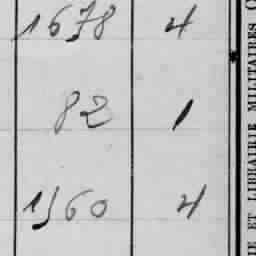 1678 4
82 1
1560 4
IE ET LIBRAIRIE MILITAIRES